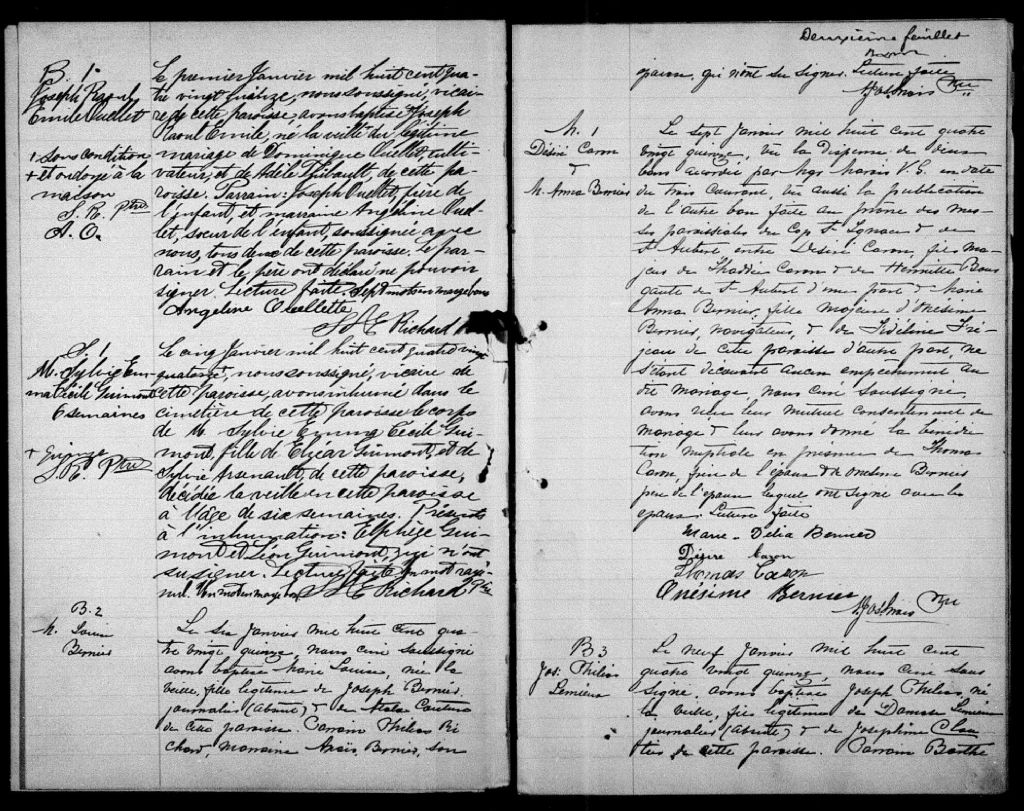 B. 1.
Joseph Raoul
Emile Ouellet
+ sous condition
+ et ondoyé à la
maison
S. R. Ptre
A. O.
Le premier Janvier mil huit cent qua-
tre vingt quinze, nous soussigné, vicai-
re de cette paroisse, avons baptisé + Joseph
Raoul Emile, né la veille du légitime
mariage de Dominique Ouellet, culti-
vateur, et de Adèle Thibault, de cette pa-
roisse. Parrain: Joseph Ouellet, frère de
l'enfant, et marraine Angéline Ouel-
let, sœur de l'enfant, soussignée avec
nous, tous deux de cette paroisse. Le par-
rain et le père ont déclaré ne pouvoir
signer. Lecture faite. Sept mots en marge bons
Angeline Ouellette
Richard
S. 1
M. Sylvie Em-
ma Cécile Guimont
6 semaines
+ quinze
S. R. Ptre
Le cinq Janvier mil huit cent quatre vingt
quatorze, nous soussigné, vicaire de
cette paroisse, avons inhumé dans le
cimetière de cette paroisse le corps
de M. Sylvie Emma Cécile Gui-
mont, fille de Elzéar Guimont, et de
Sylvie Arsenault, de cette paroisse,
décédée la veille en cette paroisse
à l'âge de six semaines. Présents
à l'inhumation: Elphège Gui-
mont et Léon Guimont, qui n'ont
su signer. Lecture faite. Un mot rayé
nul. Un mot en marge bon. Richard Ptre
B. 2
M. Louise
Bernier
Le six Janvier mil huit cent qua
tre vingt quinze, nous curé soussigné
avons baptisé Marie Louise, née la
veille, fille légitime de Joseph Bernier
journalier (absent) & de
de cette paroisse. Parrain Philias Ri
chard, Marraine Anaïs Bernier, son
Deuxième feuillet
épouse, qui n'ont su signer. Lecture faite
Ptre
M. 1
Désiré Caron
&
M. Anna Bernier
Le sept Janvier mil huit cent quatre
vingt quinze, Vu la dispense de deux
bans accordée par Mgr Marais V. G. en date
du trois courant, vu aussi la publication
de l'autre ban faite au prône des mes-
ses paroissiales du Cap St Ignace & de
St Aubert entre Désiré Caron, fils ma-
jeur de Thaddée Caron & de Herméline Bour
gault de St Aubert d'une part & Marie
Anna Bernier, fille majeure d'Onésime
Bernier, navigateur, & de
de cette paroisse d'autre part, ne
s'étant découvert aucun empêchement au
dit mariage, Nous curé soussigné
avons reçu leur mutuel consentement de
mariage & leur avons donné la bénédic
tion nuptiale en présence de Thomas
Caron, frère de l'époux & de Onésime Bernier
père de l'épouse lesquels ont signé avec les
époux. Lecture faite
Marie-Délia Bernier
Désire Caron
Thomas Caron
Onésime Bernier
Ptre
B 3
Jos. Philias
Lemieux
Le neuf Janvier mil huit cent
quatre vingt quinze, nous curé sous
signé, avons baptisé Joseph Philias, né
la veille, fils légitime de Damase Lemieux
journalier (absent) & de Joséphine Clou
tier de cette paroisse. Parrain Barthé